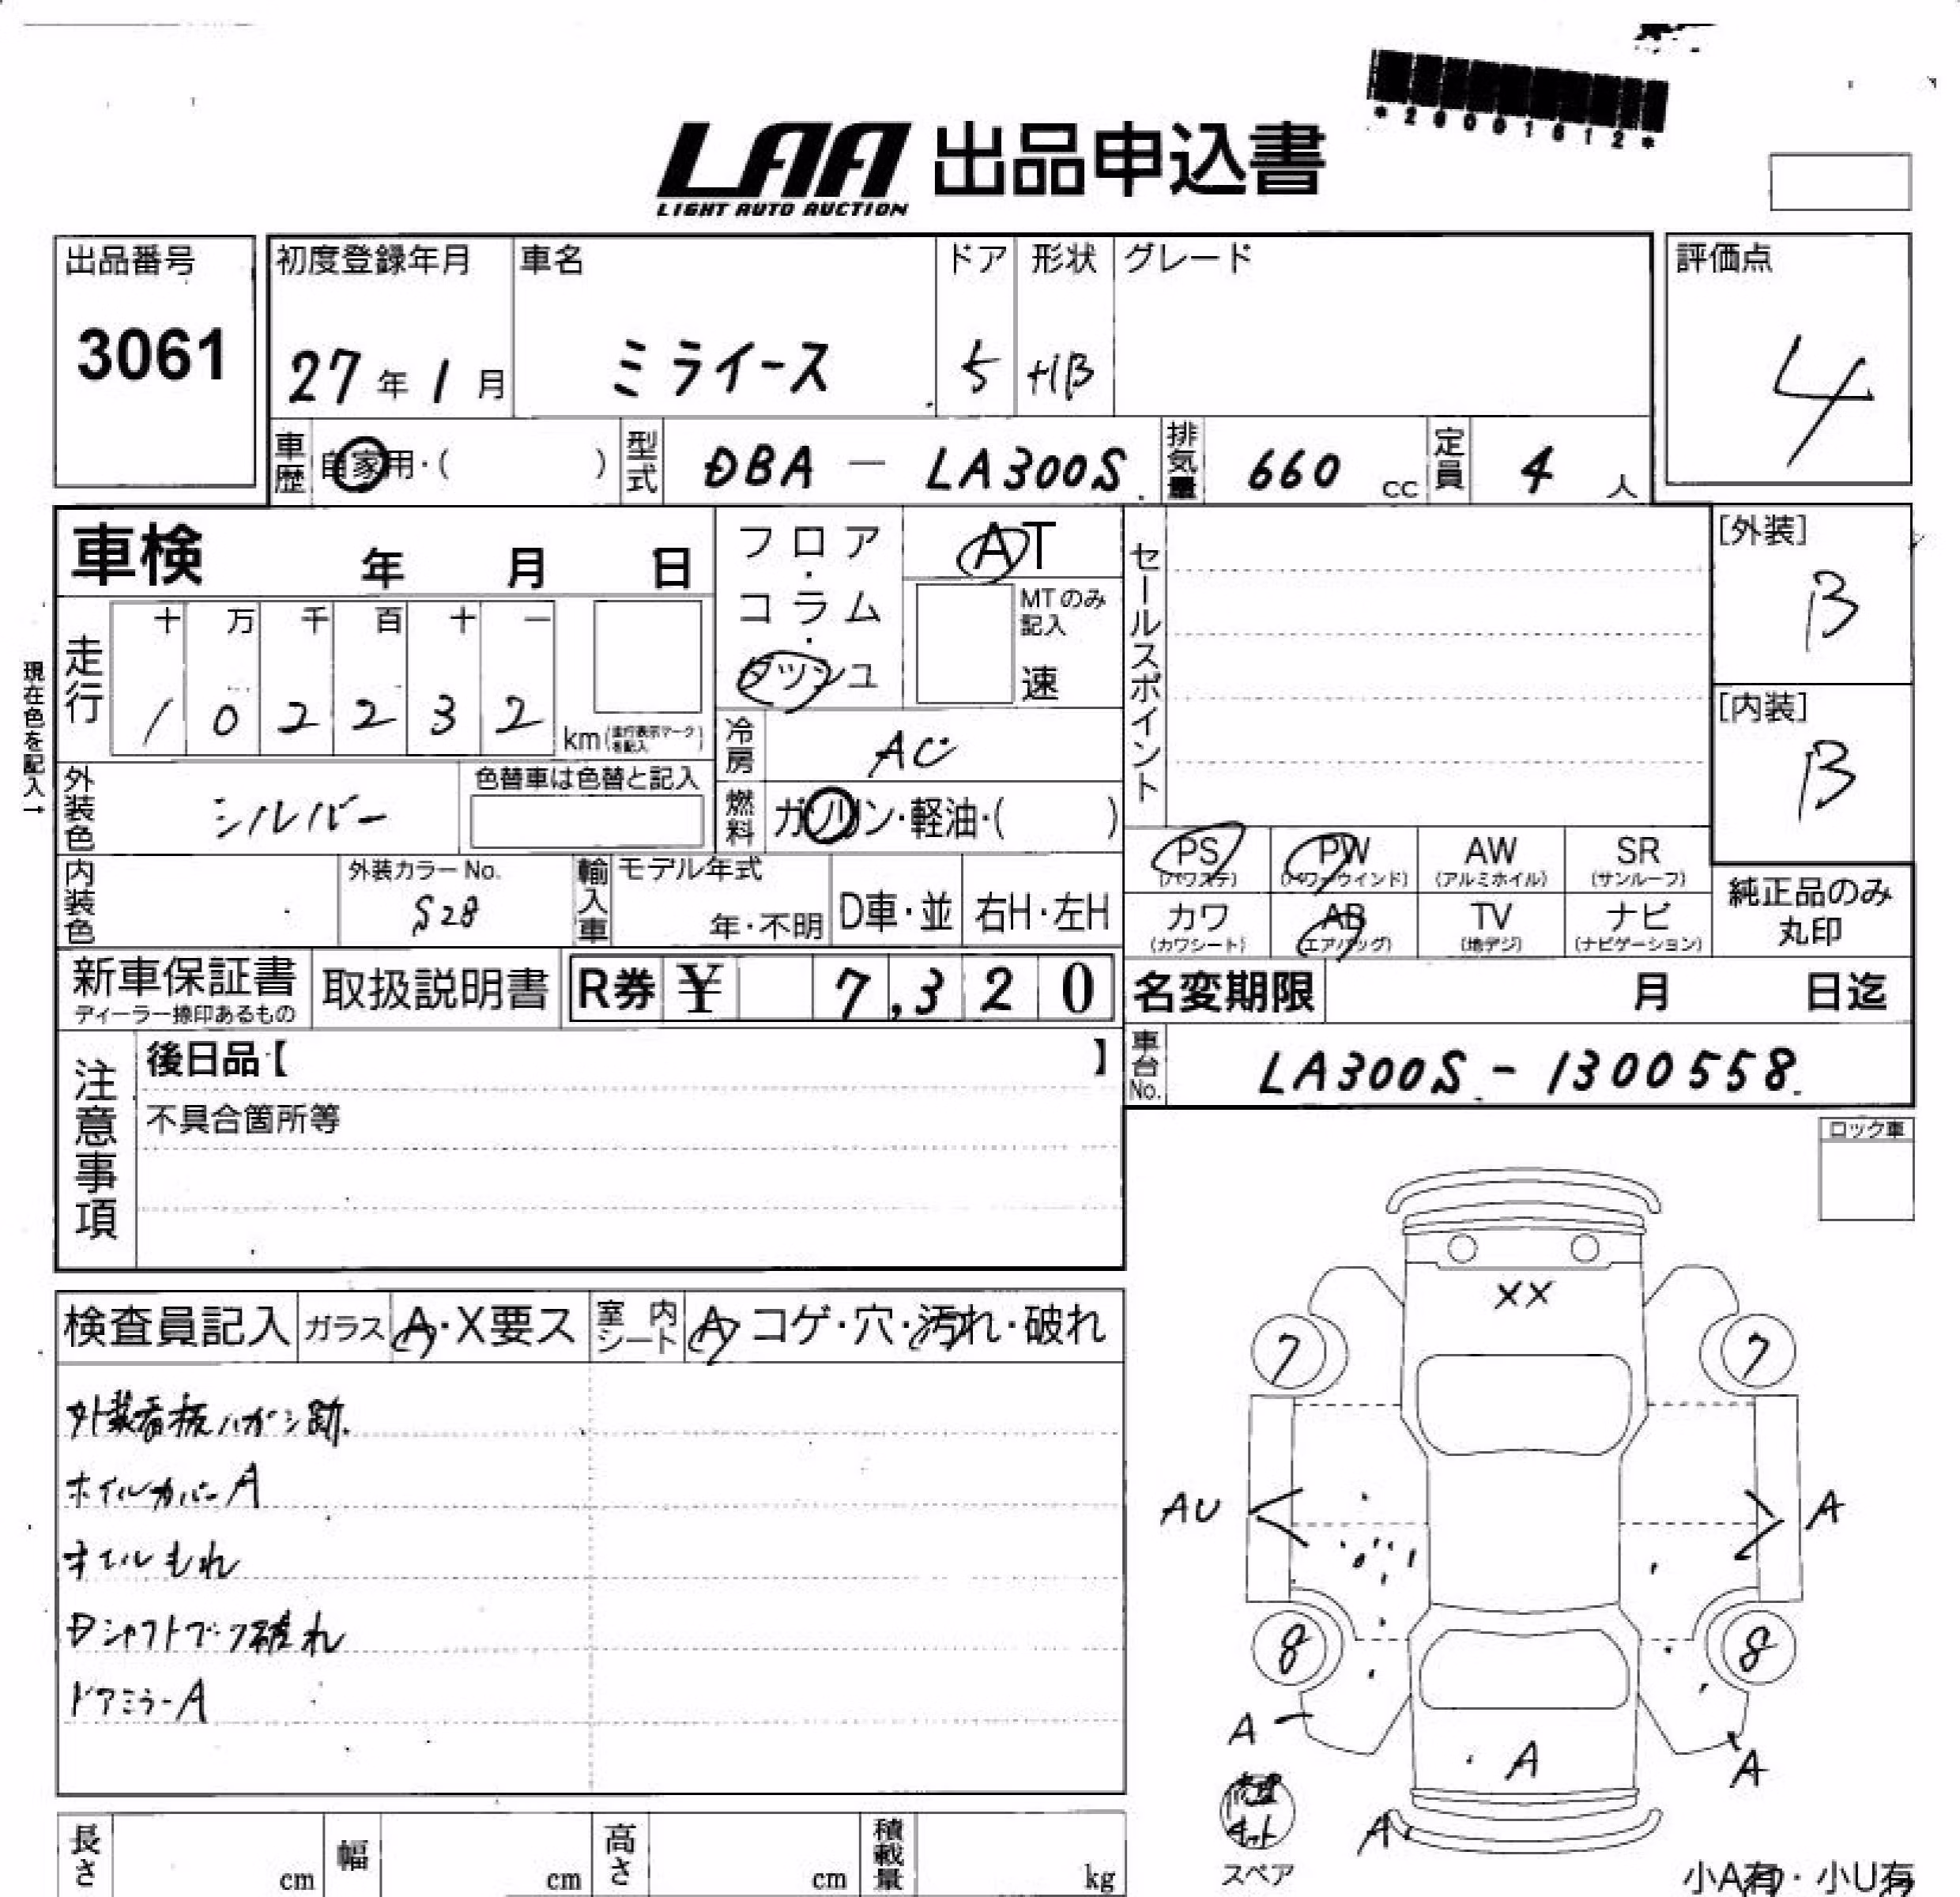 *20001612*
LAA 出品申込書
LIGHT AUTO AUCTION
出品番号 初度登録年月 車名 ドア 形状 グレード 評価点
3061 27年1月 ミライース 5 HB 4
車歴 自家用・( ) 型式 DBA — LA300S 排気量 660 cc 定員 4 人
車検 年 月 日 フロア・コラム・ダッシュ AT セールスポイント [外装]
B
MTのみ記入 速
現在色を記入→
走行 十 万 千 百 十 一
1 0 2 2 3 2 km(走行表示マークを記入)
[内装]
B
冷房 AC
外装色 シルバー 色替車は色替と記入 燃料 ガソリン・軽油・( )
PS PW AW SR
(パワステ) (パワーウインド) (アルミホイル) (サンルーフ)
内装色 外装カラーNo. 輸入車 モデル年式 純正品のみ
S28 年・不明 D車・並 右H・左H 丸印
カワ AB TV ナビ
(カワシート) (エアバッグ) (地デジ) (ナビゲーション)
新車保証書 取扱説明書 R券 ¥ 7,320 名変期限 月 日迄
ディーラー捺印あるもの
注意事項 後日品【 】 車台No. LA300S - 1300558
不具合箇所等
ロック車
XX
検査員記入 ガラス A・X要ス 室内シート A・コゲ・穴・汚れ・破れ
7 7
外装看板ハガシ跡.
ホイルカバーA
AU A
オイルもれ
Dシャフトブーツ破れ
8 8
ドアミラーA
A A A
修理キット
A
スペア
長さ cm 幅 cm 高さ cm 積載量 kg
小A有・小U有